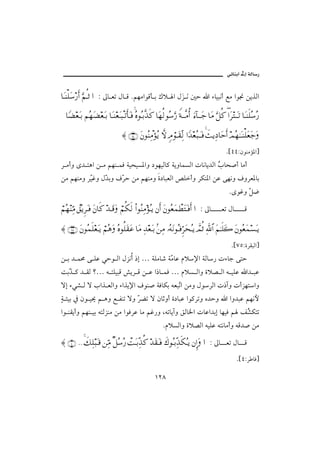 رسالة إلى ابنتي
الذين نجوا مع أنبياء الله حين نزل الهلاك بأقوامهم. قال تعالى : ﴿ ثُمَّ أَرْسَلْنَا
رُسُلَنَا تَتْرَا كُلَّ مَا جَاءَ أُمَّةً رَسُولُهَا كَذَّبُوهُ فَأَتْبَعْنَا بَعْضَهُمْ بَعْضًا
وَجَعَلْنَاهُمْ أَحَادِيثَ فَبُعْدًا لِقَوْمٍ لَا يُؤْمِنُونَ ﴾
[المؤمنون:٤٤].
أما أصحاب الديانات السماوية كاليهود والمسيحية فمنهم من اهتدى وأمر
بالمعروف ونهى عن المنكر وأخلص العبادة ومنهم من حرّف وبدّل وغيّر ومنهم من
ضلّ وغوى.
قال تعالى : ﴿ أَفَتَطْمَعُونَ أَنْ يُؤْمِنُوا لَكُمْ وَقَدْ كَانَ فَرِيقٌ مِنْهُمْ
يَسْمَعُونَ كَلَامَ اللَّهِ ثُمَّ يُحَرِّفُونَهُ مِنْ بَعْدِ مَا عَقَلُوهُ وَهُمْ يَعْلَمُونَ ﴾
[البقرة:٧٥].
حتى جاءت رسالة الإسلام عامّة شاملة ... إذ أُنزل الوحي على محمد بن
عبدالله عليه الصلاة والسلام ... فماذا عن قريش قبيلته ...؟ لقد كذّبت
واستهزأت وآذت الرسول ومن اتّبعه بكافة صنوف الإيذاء والعذاب لا لشيء إلا
لأنهم عبدوا الله وحده وتركوا عبادة أوثان لا تضرّ ولا تنفع وهم يحيون في بيئةٍ
تتكشّف لهم فيها إبداعات الخالق وآياته، ورغم ما عرفوا من منزلته بينهم وأيقنوا
من صدقه وأمانته عليه الصلاة والسلام.
قال تعالى : ﴿ وَإِنْ يُكَذِّبُوكَ فَقَدْ كُذِّبَتْ رُسُلٌ مِنْ قَبْلِكَ .. ﴾
[فاطر:٤].
١٢٨